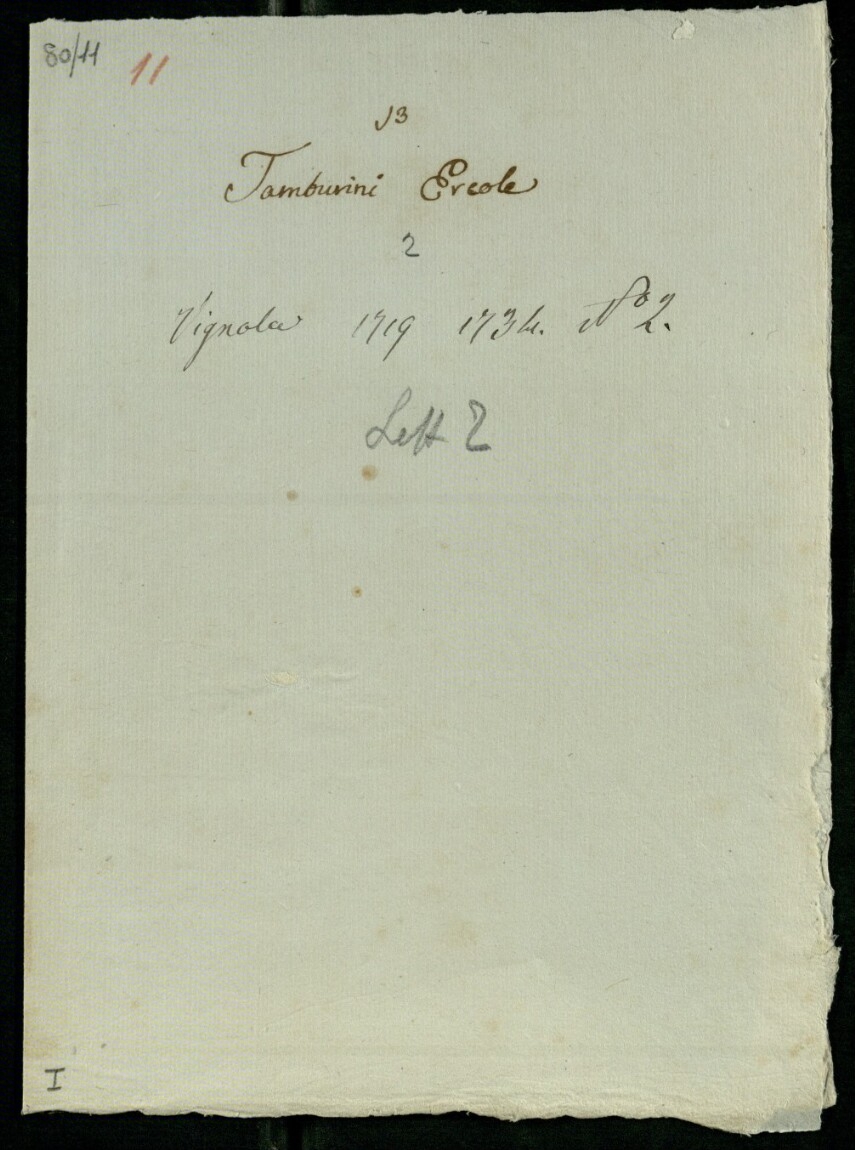 80/11 11
13
Tamburini Ercole
2
Vignola 1719 1734. N° 2.
Lett 2
I